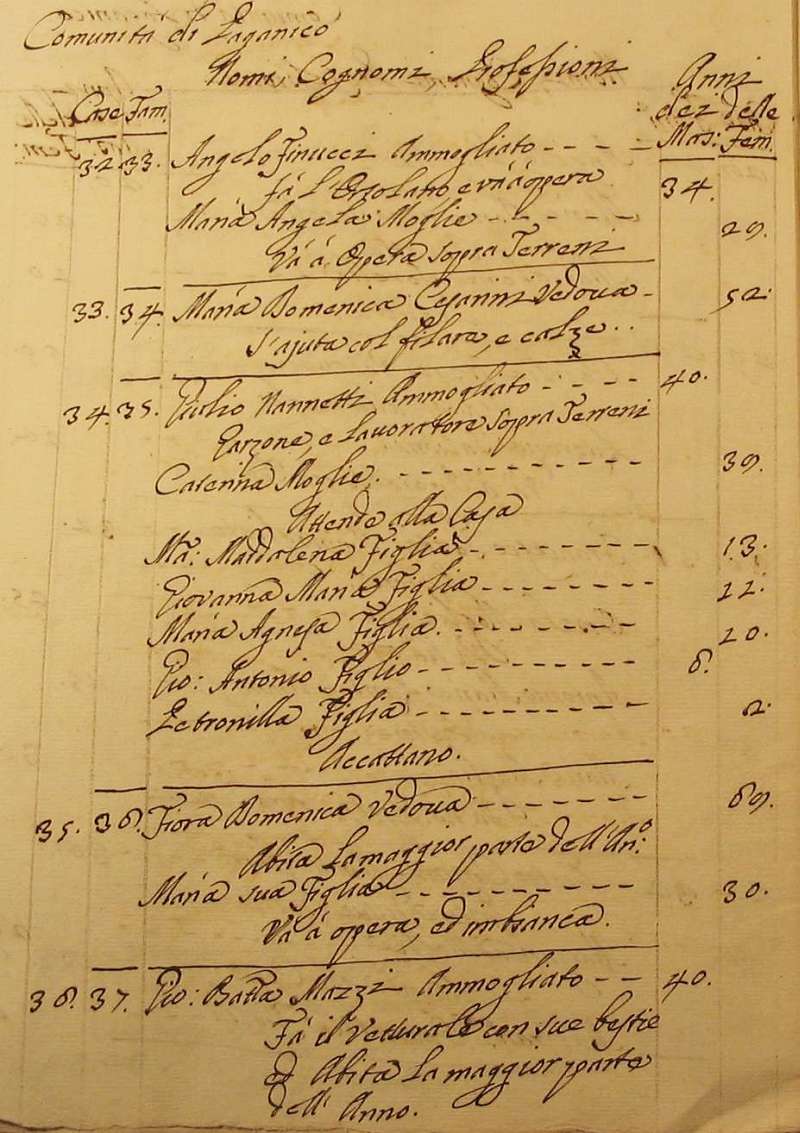 Comunità di Paganico
Nomi, Cognomi Professioni
Anni
Case Fam. dei delle
Mas: Fem.
32 33. Angelo Finucci Ammogliato - - - - 34.
Fá l'Ortolano, e vá á opera
Maria Angela Moglie - - - - - - 29.
Vá á Opera sopra Terreni
33. 34. Maria Domenica Cesarini Vedova - 52.
S'ajuta col filare, e calze . .
34. 35. Giulio Nannetti Ammogliato - - - - 40.
Garzone, e Lavoratore sopra Terreni
Caterina Moglie. - - - - - - - - - - - 39.
Attende alla Casa
Ma: Maddalena Figlia - - - - - - - - - 13.
Giovanna Maria Figlia - - - - - - - - 22.
Maria Agnesa Figlia. - - - - - - - - - 20.
Gio: Antonio Figlio - - - - - - - - - - 6.
Petronilla Figlia - - - - - - - - - - 2.
Accattano.
35. 36. Fiora Domenica Vedova - - - - - - - 69.
Abita La maggior parte dell'An:o
Maria sua Figlia - - - - - - - - - - 30.
Vá á opera, ed imbianca.
36. 37. Gio: Batta Mazzi Ammogliato - - 40.
Fá il Vetturale con sue bestie
ed Abita La maggior parte
dell' Anno.